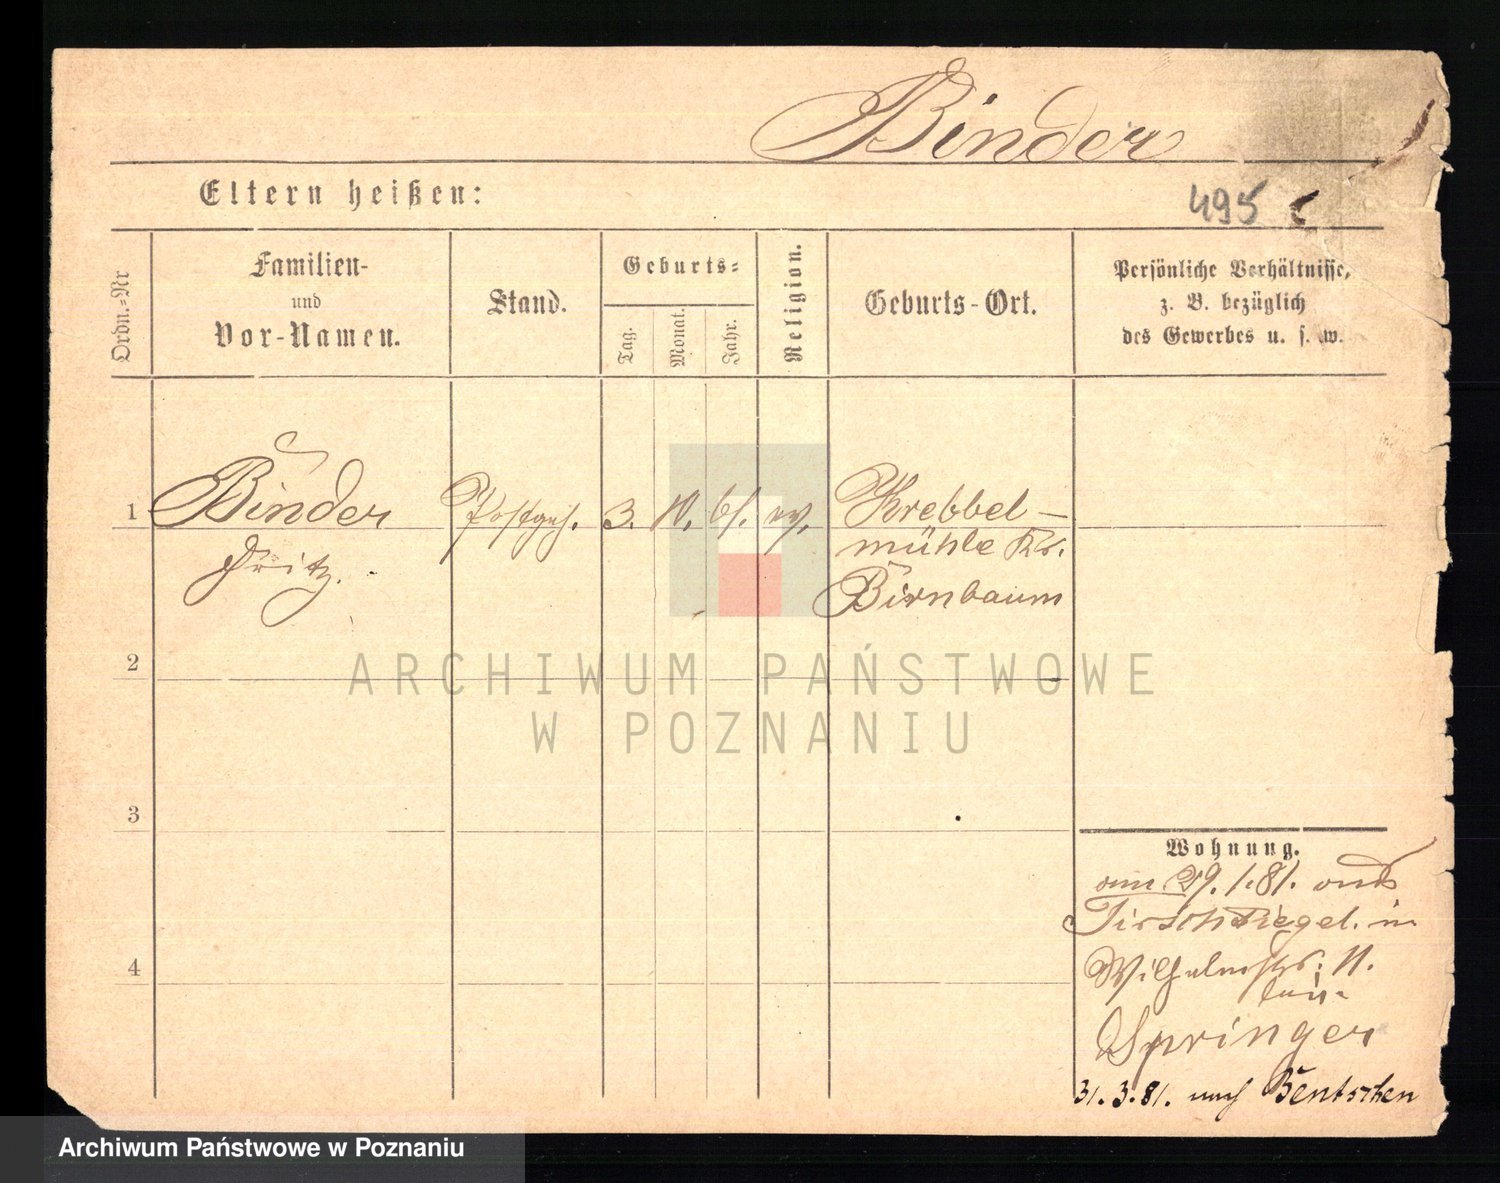 Binder
Eltern heißen:
495
Ordn.-Nr
Familien-
und
Vor-Namen.
Stand.
Geburts-
Tag.
Monat.
Jahr.
Religion.
Geburts-Ort.
Persönliche Verhältnisse,
z. B. bezüglich
des Gewerbes u. s. w.
1
Binder
Fritz.
Postgeh.
3.
10.
61.
ev.
Krebbel-
mühle Kr.
Birnbaum
2
ARCHIWUM PAŃSTWOWE
W POZNANIU
3
4
Wohnung.
am 29. 1. 81. aus
Tirschtiegel. in
Wilhelmstr. 11.
bei
Springer
31. 3. 81. nach Bentschen
Archiwum Państwowe w Poznaniu